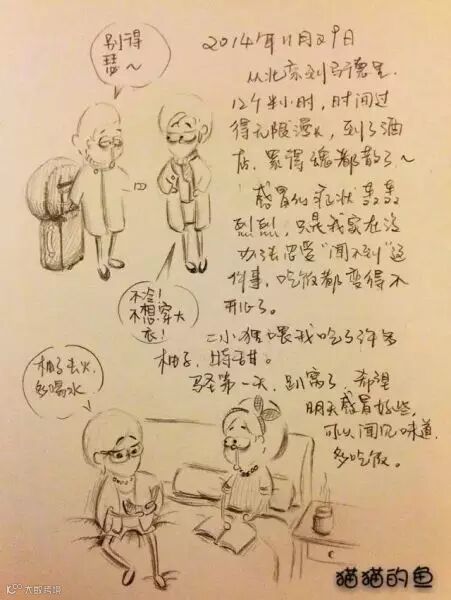 别得
瑟~
2014年11月29日
从北京到马德里
12个半小时,时间过
得无限漫长,到了酒
店,累得魂都散了~
感冒的症状轰轰
烈烈,只是我实在没
办法忍受“闻不到”这
件事,吃饭都变得不
开心了。
不冷!
不想穿大
衣!
二小猫喂我吃了许多
柚子,特甜。
马德第一天,趴窝了,希望
明天感冒好些,
可以闻见味道,
多吃饭。
柚子去火,
多喝水
猫猫的鱼
大数跨境